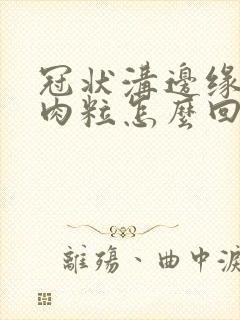 冠状溝邊缘
肉粒怎麼回
離殤、曲中淚